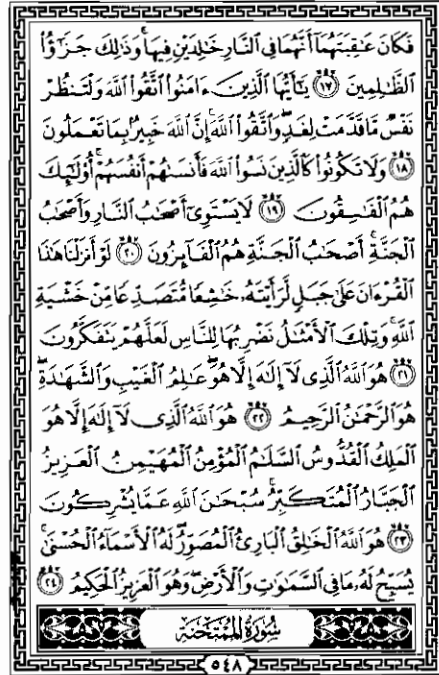 فَكَانَ عَٰقِبَتَهُمَآ أَنَّهُمَا فِي ٱلنَّارِ خَٰلِدَيْنِ فِيهَا ۚ وَذَٰلِكَ جَزَٰٓؤُا۟
ٱلظَّٰلِمِينَ ١٧ يَٰٓأَيُّهَا ٱلَّذِينَ ءَامَنُوا۟ ٱتَّقُوا۟ ٱللَّهَ وَلْتَنظُرْ
نَفْسٌ مَّا قَدَّمَتْ لِغَدٍ ۖ وَٱتَّقُوا۟ ٱللَّهَ ۚ إِنَّ ٱللَّهَ خَبِيرٌۢ بِمَا تَعْمَلُونَ
١٨ وَلَا تَكُونُوا۟ كَٱلَّذِينَ نَسُوا۟ ٱللَّهَ فَأَنسَىٰهُمْ أَنفُسَهُمْ ۚ أُو۟لَٰٓئِكَ
هُمُ ٱلْفَٰسِقُونَ ١٩ لَا يَسْتَوِىٓ أَصْحَٰبُ ٱلنَّارِ وَأَصْحَٰبُ
ٱلْجَنَّةِ ۚ أَصْحَٰبُ ٱلْجَنَّةِ هُمُ ٱلْفَآئِزُونَ ٢٠ لَوْ أَنزَلْنَا هَٰذَا
ٱلْقُرْءَانَ عَلَىٰ جَبَلٍ لَّرَأَيْتَهُۥ خَٰشِعًا مُّتَصَدِّعًا مِّنْ خَشْيَةِ
ٱللَّهِ ۚ وَتِلْكَ ٱلْأَمْثَٰلُ نَضْرِبُهَا لِلنَّاسِ لَعَلَّهُمْ يَتَفَكَّرُونَ
٢١ هُوَ ٱللَّهُ ٱلَّذِى لَآ إِلَٰهَ إِلَّا هُوَ ۖ عَٰلِمُ ٱلْغَيْبِ وَٱلشَّهَٰدَةِ ۖ
هُوَ ٱلرَّحْمَٰنُ ٱلرَّحِيمُ ٢٢ هُوَ ٱللَّهُ ٱلَّذِى لَآ إِلَٰهَ إِلَّا هُوَ
ٱلْمَلِكُ ٱلْقُدُّوسُ ٱلسَّلَٰمُ ٱلْمُؤْمِنُ ٱلْمُهَيْمِنُ ٱلْعَزِيزُ
ٱلْجَبَّارُ ٱلْمُتَكَبِّرُ ۚ سُبْحَٰنَ ٱللَّهِ عَمَّا يُشْرِكُونَ
٢٣ هُوَ ٱللَّهُ ٱلْخَٰلِقُ ٱلْبَارِئُ ٱلْمُصَوِّرُ ۖ لَهُ ٱلْأَسْمَآءُ ٱلْحُسْنَىٰ ۚ
يُسَبِّحُ لَهُۥ مَا فِي ٱلسَّمَٰوَٰتِ وَٱلْأَرْضِ ۖ وَهُوَ ٱلْعَزِيزُ ٱلْحَكِيمُ ٢٤
سُورَةُ الْمُمْتَحِنَةِ
٥٤٨